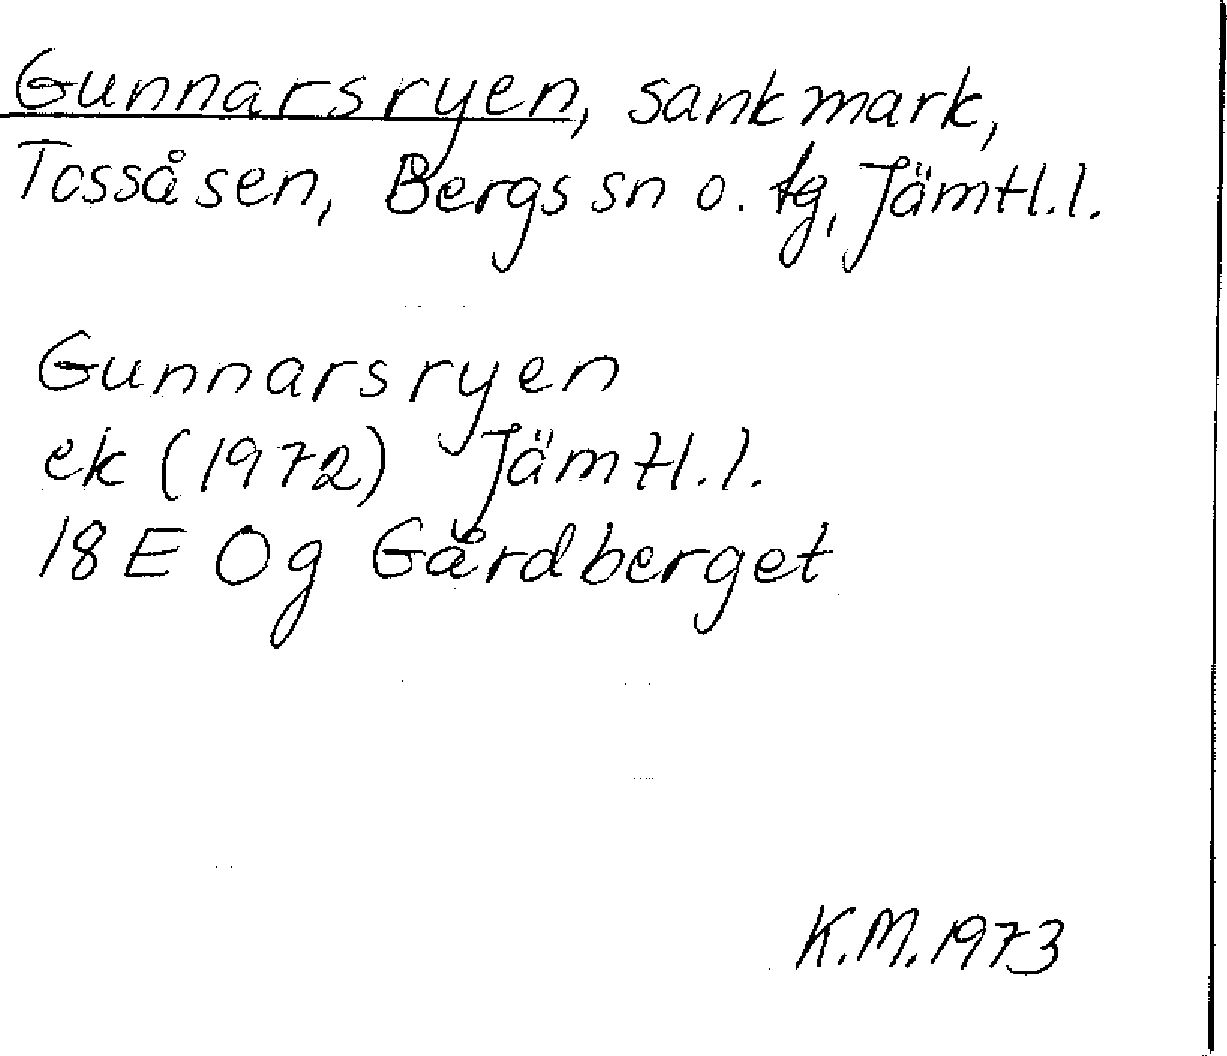 Gunnarsryen, sankmark,
Tossåsen, Bergs sn o. tg, Jämtl.l.
Gunnarsryen
ek (1972) Jämtl.l.
18E 0g Gårdberget
K.M. 1973